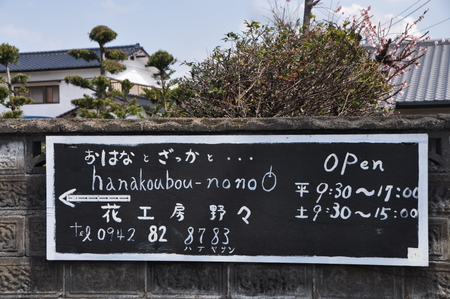 おはなとざっかと・・・
hanakoubou-nono
花工房 野々
tel 0942 82 8783
ハナヤサン
OPen
平 9:30〜17:00
土 9:30〜15:00